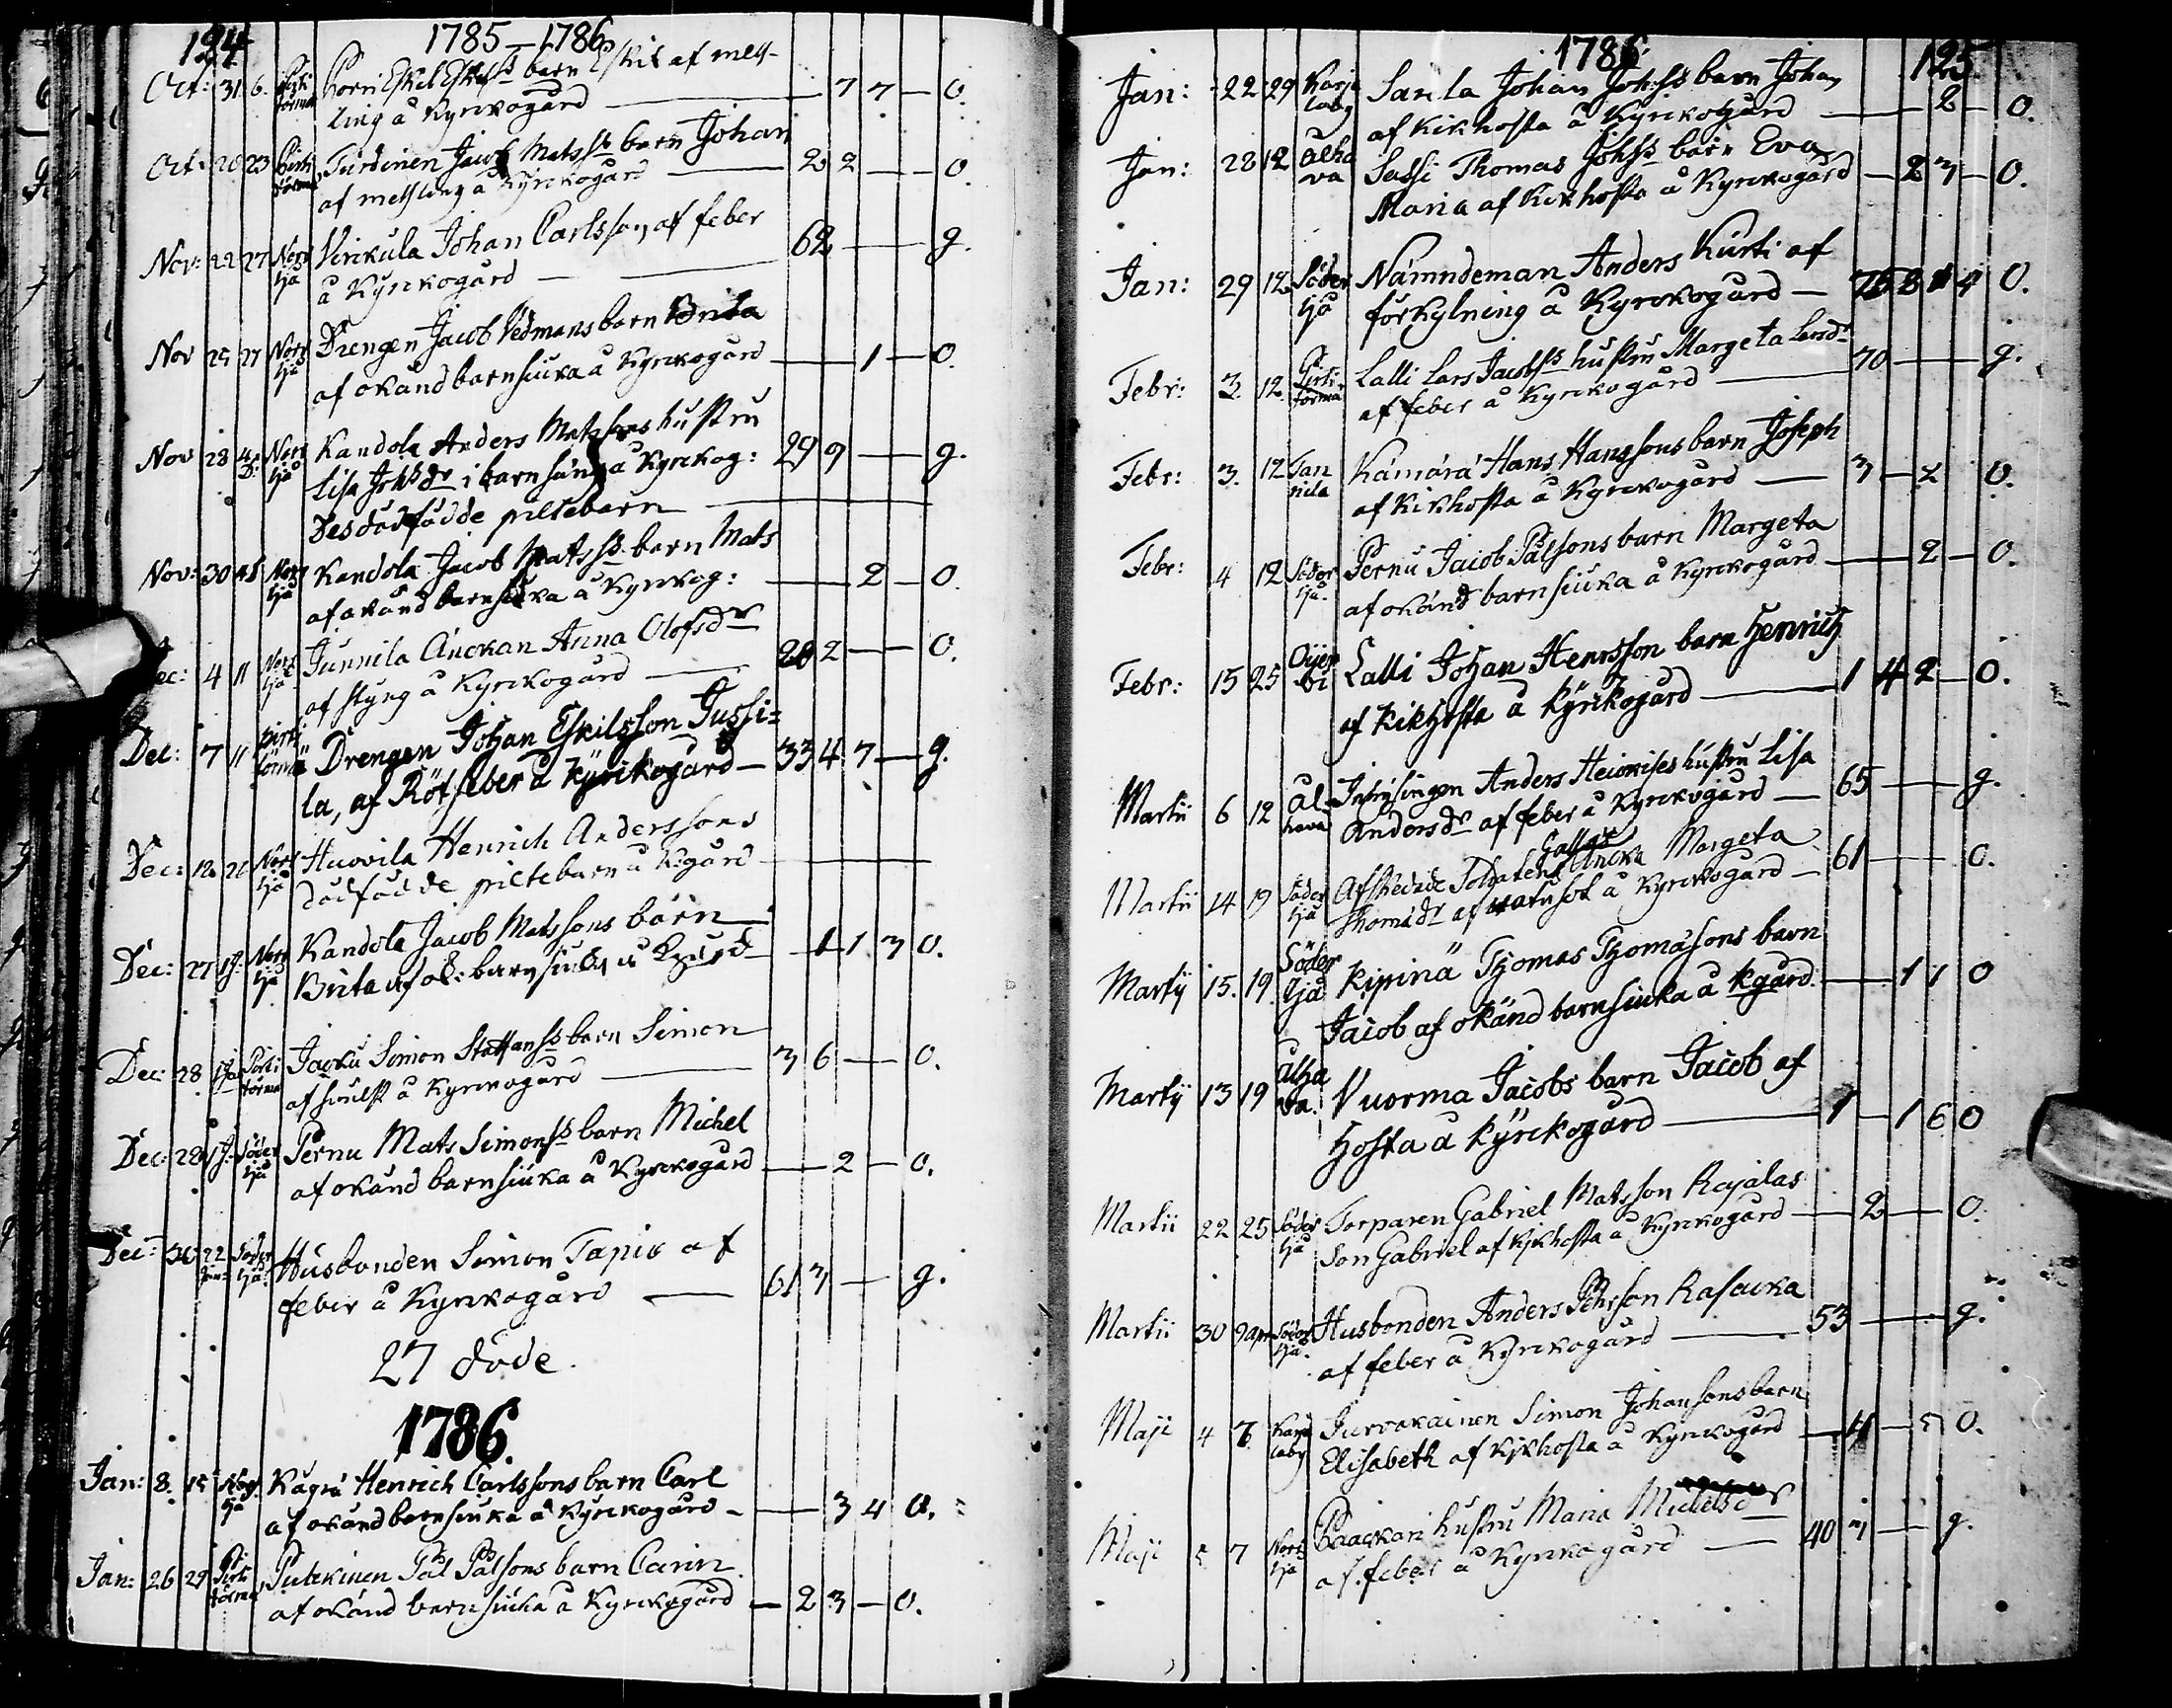 124
1785–1786
Oct: 31. 6. Pirti törmä Porri Eskel Eskelss barn Eskil af mess-
ling å Kyrkogård — 7 7 — 0.
Oct: 20 23 Pirti törmä Turdinen Jacob Matsss barn Johan
af messling å Kyrkogård — 2 2 — 0.
Nov: 22 27 Norr tjä Virikula Johan Carlsson af feber
å Kyrkogård — 62 — g.
Nov 25 27 Norr tjä Drengen Jacob Vedmans barn Brita
af okänd barnsiuka å Kyrkogård — 1 — 0.
Nov 28 4 D: Norr tjä Kandola Anders Matssons hustru
Lisa Johsdr i barnsäng å Kyrkog: 29 9 — g.
Des dödfödde piltebarn —
Nov: 30 Norr tjä Kandola Jacob Matsss barn Mats
af okänd barnsiuka å Kyrkog: — 2 — 0.
Dec: 4 11 Norr tjä Junnila Änckan Anna Olofsdr
af styng å Kyrkogård — 2 — 0.
Dec: 7 11 Pirti törmä Drengen Johan Eskilsson Jussi=
la, af Rötfeber å Kyrikogård — 33 4 7 — g.
Dec: 12 26 Norr tjä Huovila Henrich Anderssons
dödfödde piltebarn å K:gård —
Dec: 27 1 J: Norr tjä Kandola Jacob Matssons barn
Brita af ok: barnsiuka å — 1 1 3 0.
Dec: 28 1 Ja Pirti törmä Jaoku Simon Staffanss barn Simon
af svulst å Kyrkogård — 3 6 — 0.
Dec: 28 1 J: Söder tjä Pernu Mats Simonss barn Michel
af okänd barnsiuka å Kyrkogård — 2 — 0.
Dec: 30 22 Jan: Söder tjä: Husbonden Simon Tapio af
feber å Kyrkogård — 61 3 — g.
27 döde.
1786.
Jan: 8. 15 Nor tjä Kägrä Henrich Carlssons barn Carl
af okänd barnsiuka å Kyrkogård — 3 4 0.
Jan: 26 29 Pirti törmä Putkinen Pål Pålsons barn Carin
af okänd barnsiuka å Kyrkogård — 2 3 — 0.
1786.
125
Jan: 22 29 Karja laby Sanla Johan Johss barn Johan
af Kikhosta å Kyrkogård — 2 — 0.
Jan: 28 12 Alha va Sassi Thomas Johss barn Eva
Maria af Kikhosta å Kyrkogård — 2 3 — 0.
Jan: 29 12 Söder tjä Nämndeman Anders Kurti af
förkylning å Kyrkogård — 75 8 4 0.
Febr: 3. 12. Pirti törmä Lalli Lars Jacobss hustru Margeta Larsdr
af feber å Kyrkogård — 70 — g.
Febr: 3. 12 Tan nila Kämärä Hans Hanssons barn Joseph
af Kikhosta å Kyrkogård — 3 — 2 0.
Febr: 4 12 Söder tjä. Pernu Jacob Pålsons barn Margeta
af okänd barnsiuka å Kyrkogård — 2 — 0.
Febr: 15 25 Oijer bi Lalli Johan Henrsson barn Henrich
af Kikhosta å Kyrkogård — 1 4 2 — 0.
Martii 6 12 Al hava Inhysingen Anders Heickises hustru Lisa
Andersdr af feber å Kyrkogård — 65 — g.
Martii 14 19 Söder tjä Afskedade Soldatens Gallas Äncka Margeta
Thomädr af vatusot å Kyrkogård — 61 — 0.
Martij 15. 19. Söder tjä Kipinä Thomas Thomäsons barn
Jacob af okänd barnsiuka å Kgård. — 1 1 0
Martij 13 19 Alha va. Vuorma Jacobs barn Jacob af
Hosta å Kyrkogård — 1 — 1 6 0
Martii 22 25 Söder tjä Torparen Gabriel Matsson Rajalas
Son Gabriel af Kikhosta å Kyrkogård — 2 — 0.
Martii 30 9 apr Söder tjä. Husbonden Anders Pehrsson Rasacka
af feber å Kyrkogård — 53 — g.
Maji 4 7. Karja laby Jurvakainen Simon Johansons barn
Elisabeth af Kikhosta å Kyrkogård — 4 — 5 0.
Maji 5 7 Norr tjä Paackari hustru Maria Michelsdr
af feber å Kyrkogård — 40 3 — g.